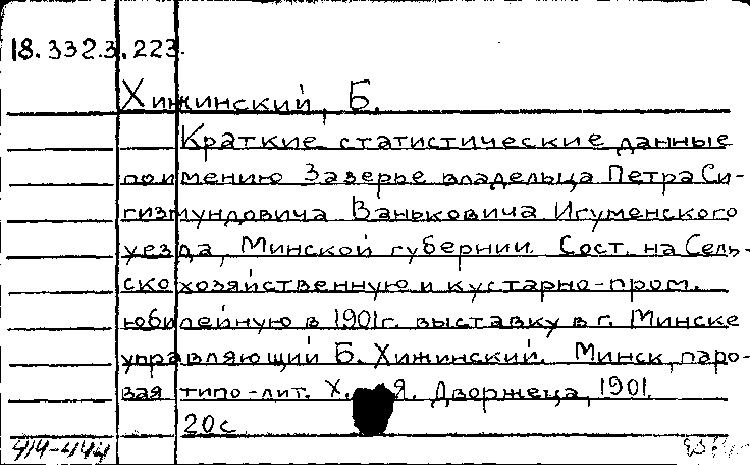 18.332.3.223.
Хижинский, Б.
Краткие статистические данные
по имению Заверье владельца Петра Си-
гизмундовича Ваньковича Игуменского
уезда, Минской губернии. Сост. на Сель-
скохозяйственную и кустарно-пром.
юбилейную в 1901г. выставку в г. Минске
управляющий Б. Хижинский. Минск, паро-
вая типо-лит. Х. Я. Дворжеца, 1901.
20с
414-444